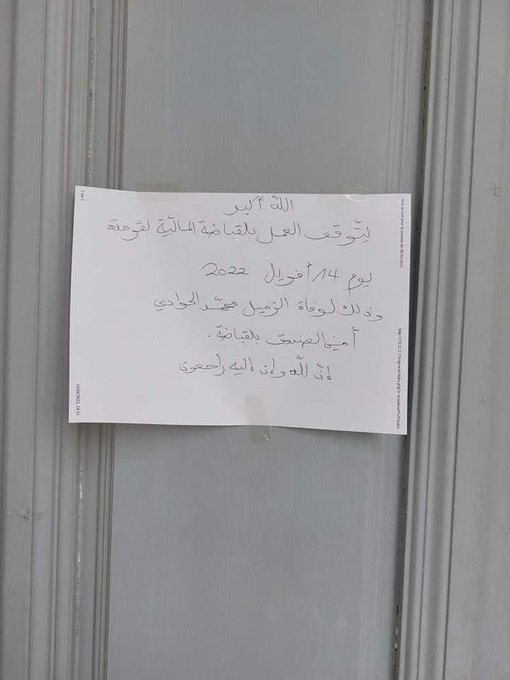 الله أكبر
يتّوقف العمل بلقباضة الماليّة بڨرمدة
يوم 14 أفريل 2022
وذلك لوفاة الزميل محمّد الحوادي
أمين الصندوق بلقباضة.
إنّ للّه وإن إليه راجعون
1 sur 2